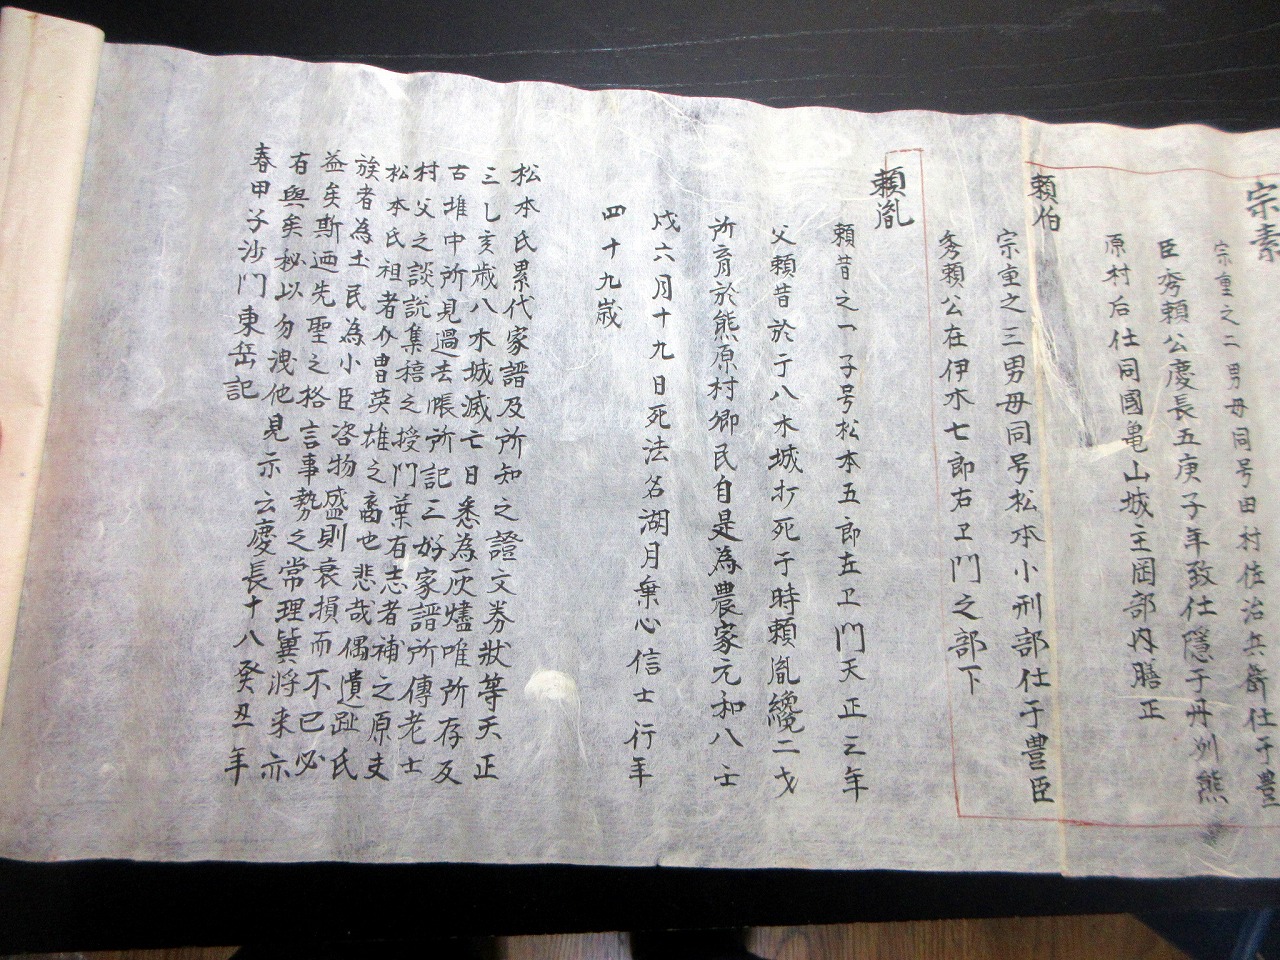 宗素
宗重之二男母同号田村佐治兵衛仕于豊
臣秀頼公慶長五庚子年致仕隠于丹州熊
原村后仕同國亀山城主岡部内膳正
頼伯
宗重之三男母同号松本小刑部仕于豊臣
秀頼公在伊木七郎右卫門之部下
頼胤
頼昔之一子号松本五郎左卫門天正三年
父頼昔於于八木城打死于時頼胤纔二才
所育於熊原村郷民自是為農家元和八壬
戌六月十九日死法名湖月棄心信士行年
四十九歳
松本氏累代家譜及所知之證文券狀等天正
三乚亥歳八木城滅亡日悉為灰燼唯所存反
古堆中所見過去帳所記三好家譜所傳老士
村父之談説集稿之授門葉有志者補之原夫
松本氏祖者介冑英雄之裔也悲哉偶遺趾氏
族者為土民為小臣咨物盛則衰損而不已必
益矣斯迺先聖之格言事勢之常理冀将来亦
有與矣秘以勿洩他見示云慶長十八癸丑年
春甲子沙門東岳記